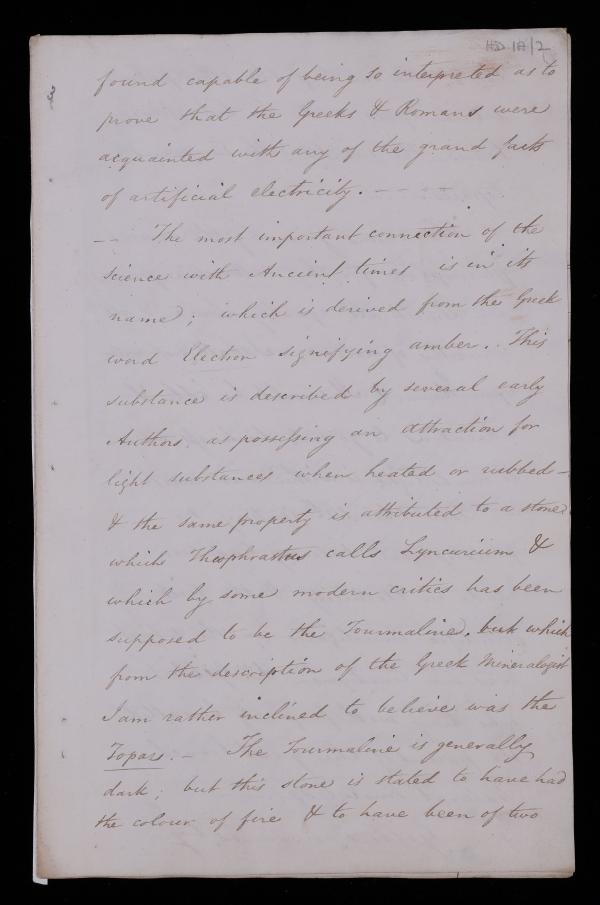 HD. 1A/2
found capable of being so interpreted as to
prove that the Greeks & Romans were
acquainted with any of the grand facts
of artificial electricity. - - - -
-- The most important connection of the
science with Ancient times is in its
name; which is derived from the Greek
word Electron signifying amber. . This
substance is described by several early
Authors as possessing an attraction for
light substances when heated or rubbed -
& the same property is attributed to a stone
which Theophrastus calls Lyncurium &
which by some modern critics has been
supposed to be the Tourmaline. but which
from the description of the Greek Mineralogist
I am rather inclined to believe was the
Topaz. - The Tourmaline is generally
dark; but this stone is stated to have had
the colour of fire & to have been of two